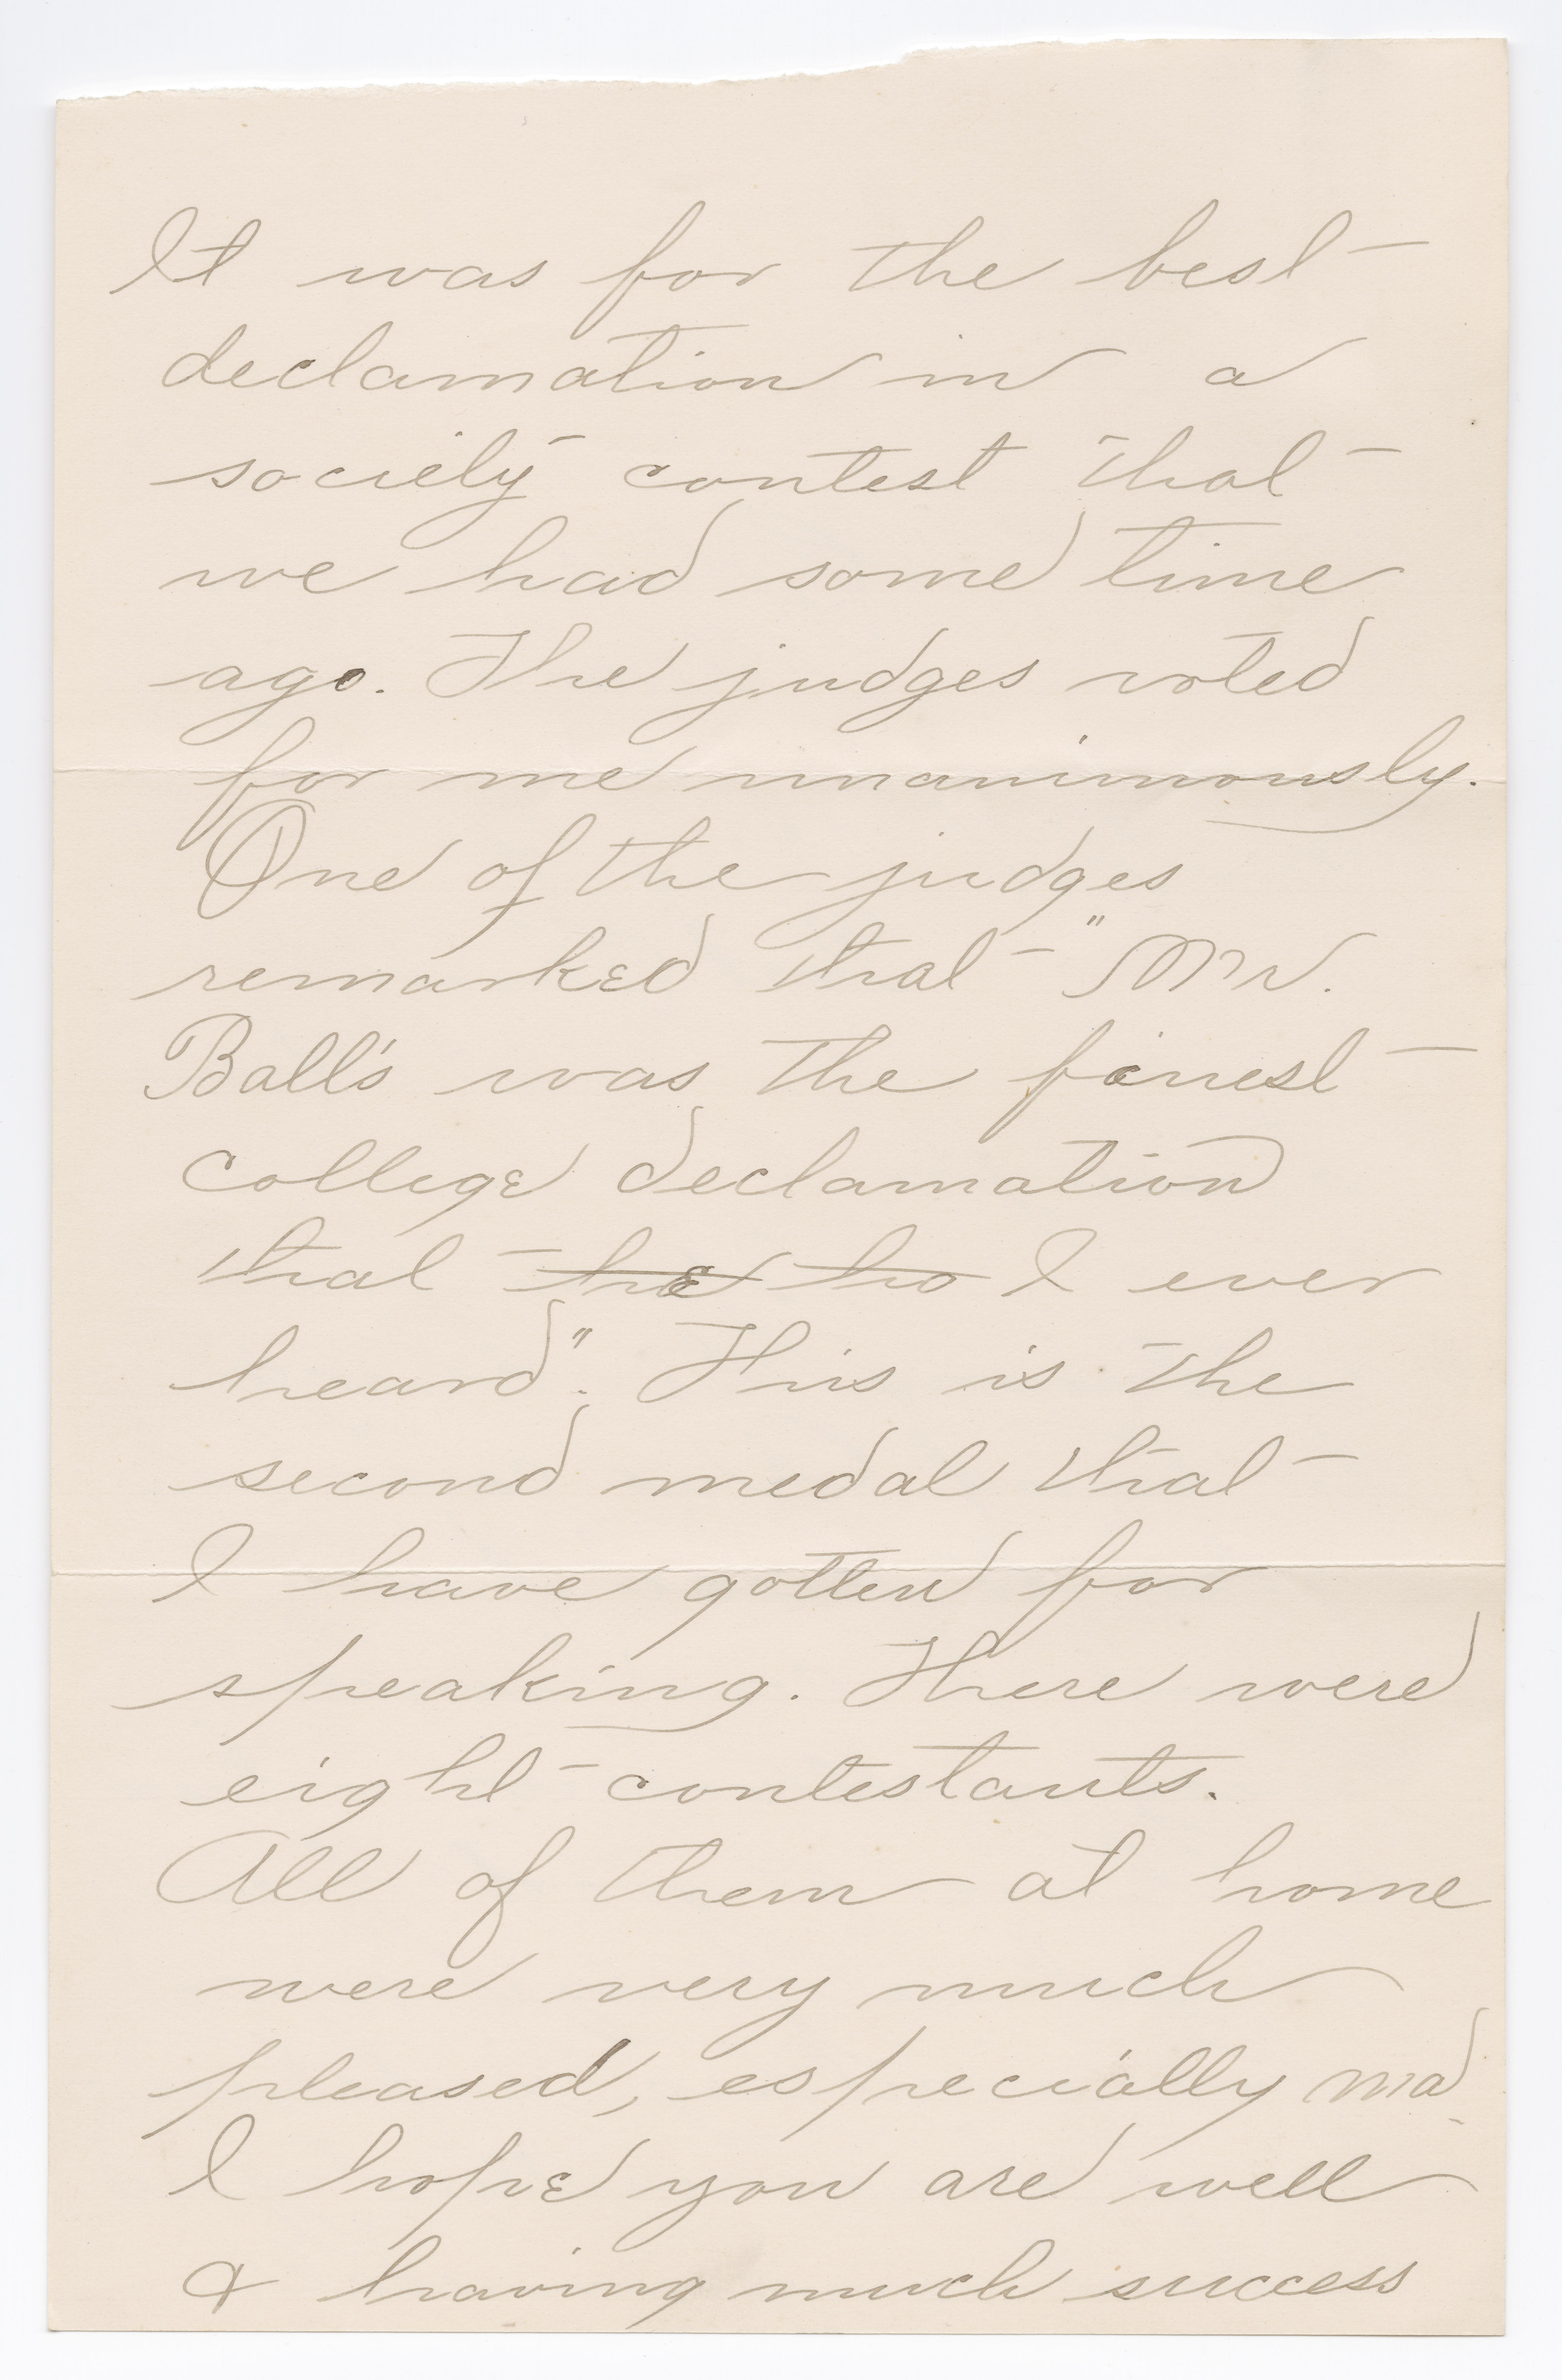 It was for the best
declamation in a
society contest that
we had some time
ago. The judges voted
for me unanimously.
One of the judges
remarked that "Mr.
Ball's was the finest
college declamation
that he ho I ever
heard". This is the
second medal that
I have gotten for
speaking. There were
eight contestants.
All of them at home
were very much
pleased, especially ma.
I hope you are well
& having much success